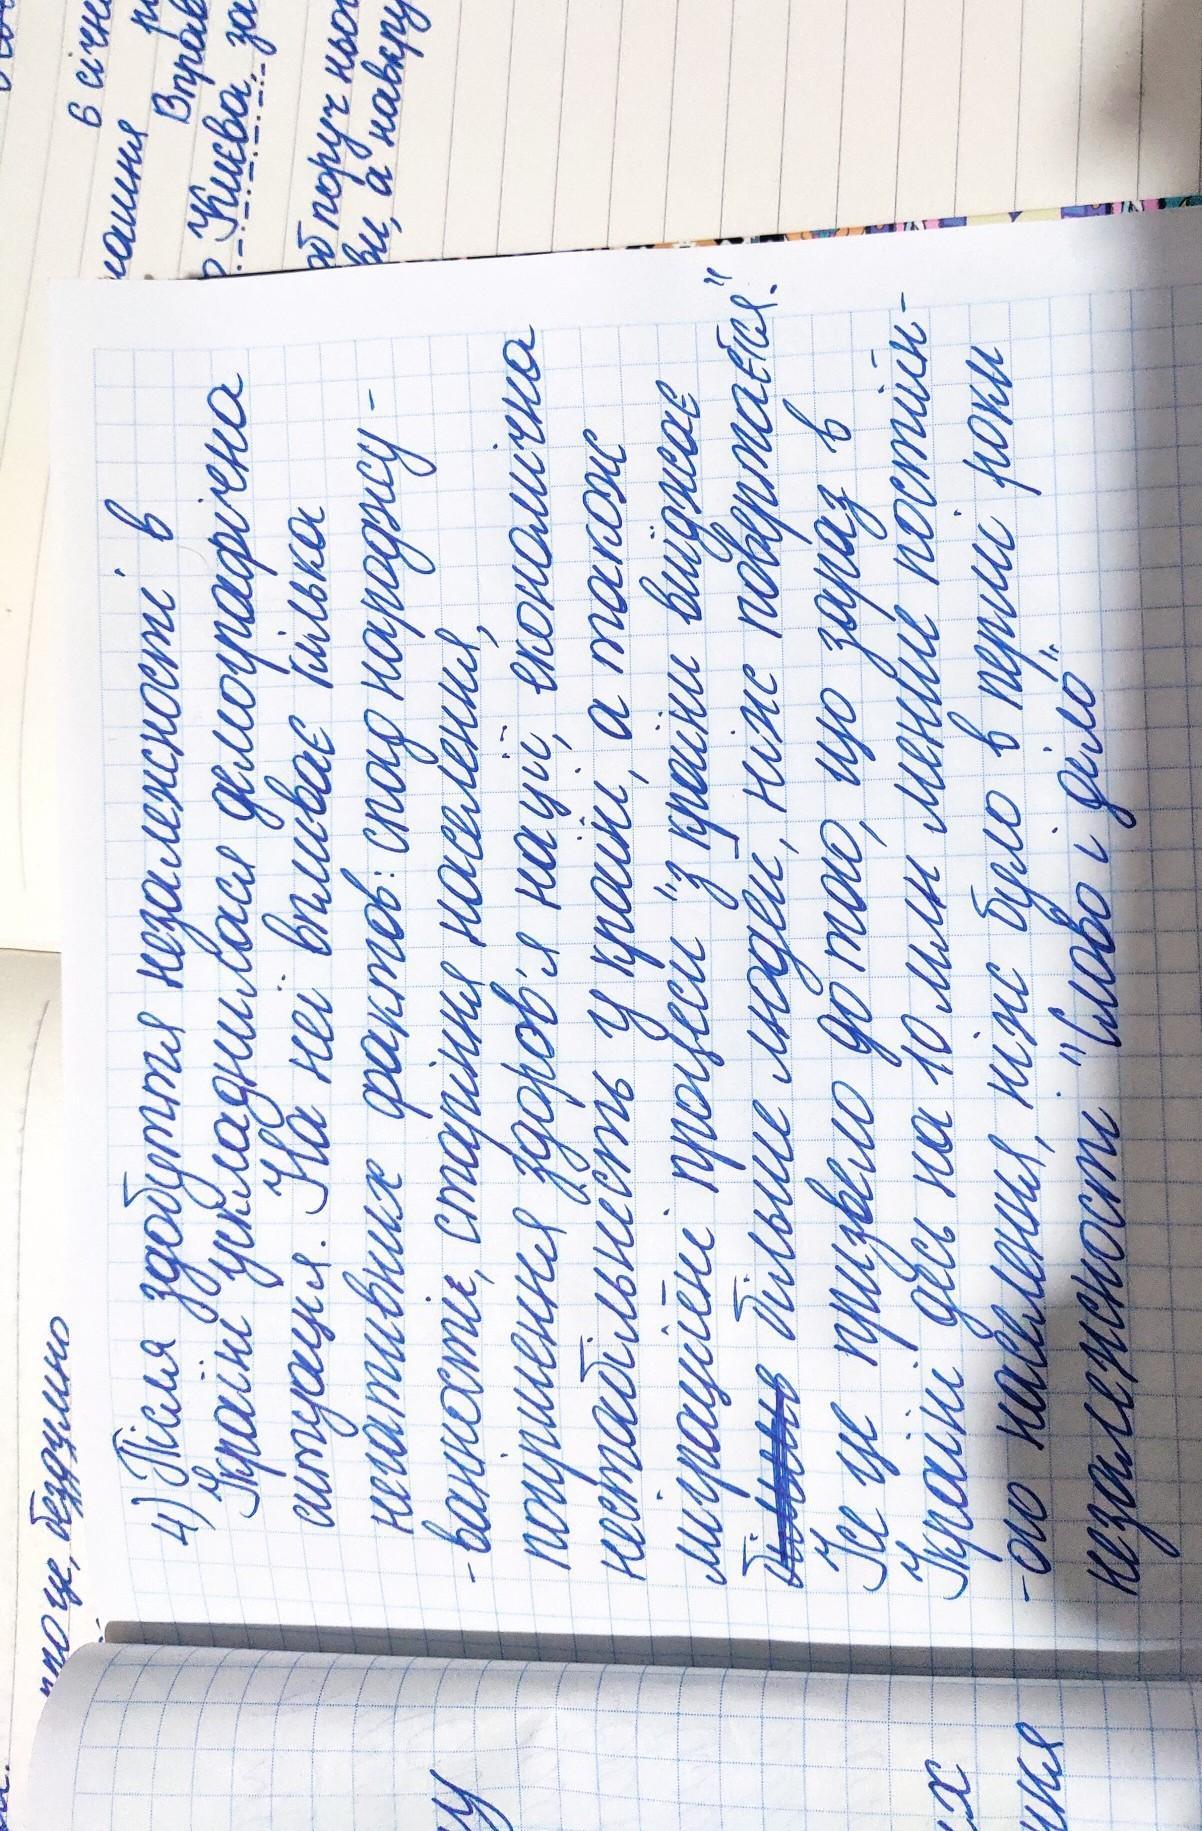 4) Після здобуття незалежності в
Україні ускладнилася демографічна
ситуація. На неї впливає кілька
негативних фактів: спад народжу-
-ваності, старіння населення,
погіршення здоров'я нації, економічна
нестабільність у країні, а також
міграційні процеси "з країни виїджає
більше людей, ніж повертається."
Усе це призвело до того, що зараз в
Україні десь на 10 млн менше постійн-
-ого населення, ніж було в перші роки
незалежності. "Слово і діло"
в січні
Вправ
Києва, за
об поруч ньог
ви, а навкру
площе, бездумно
у
их
ння